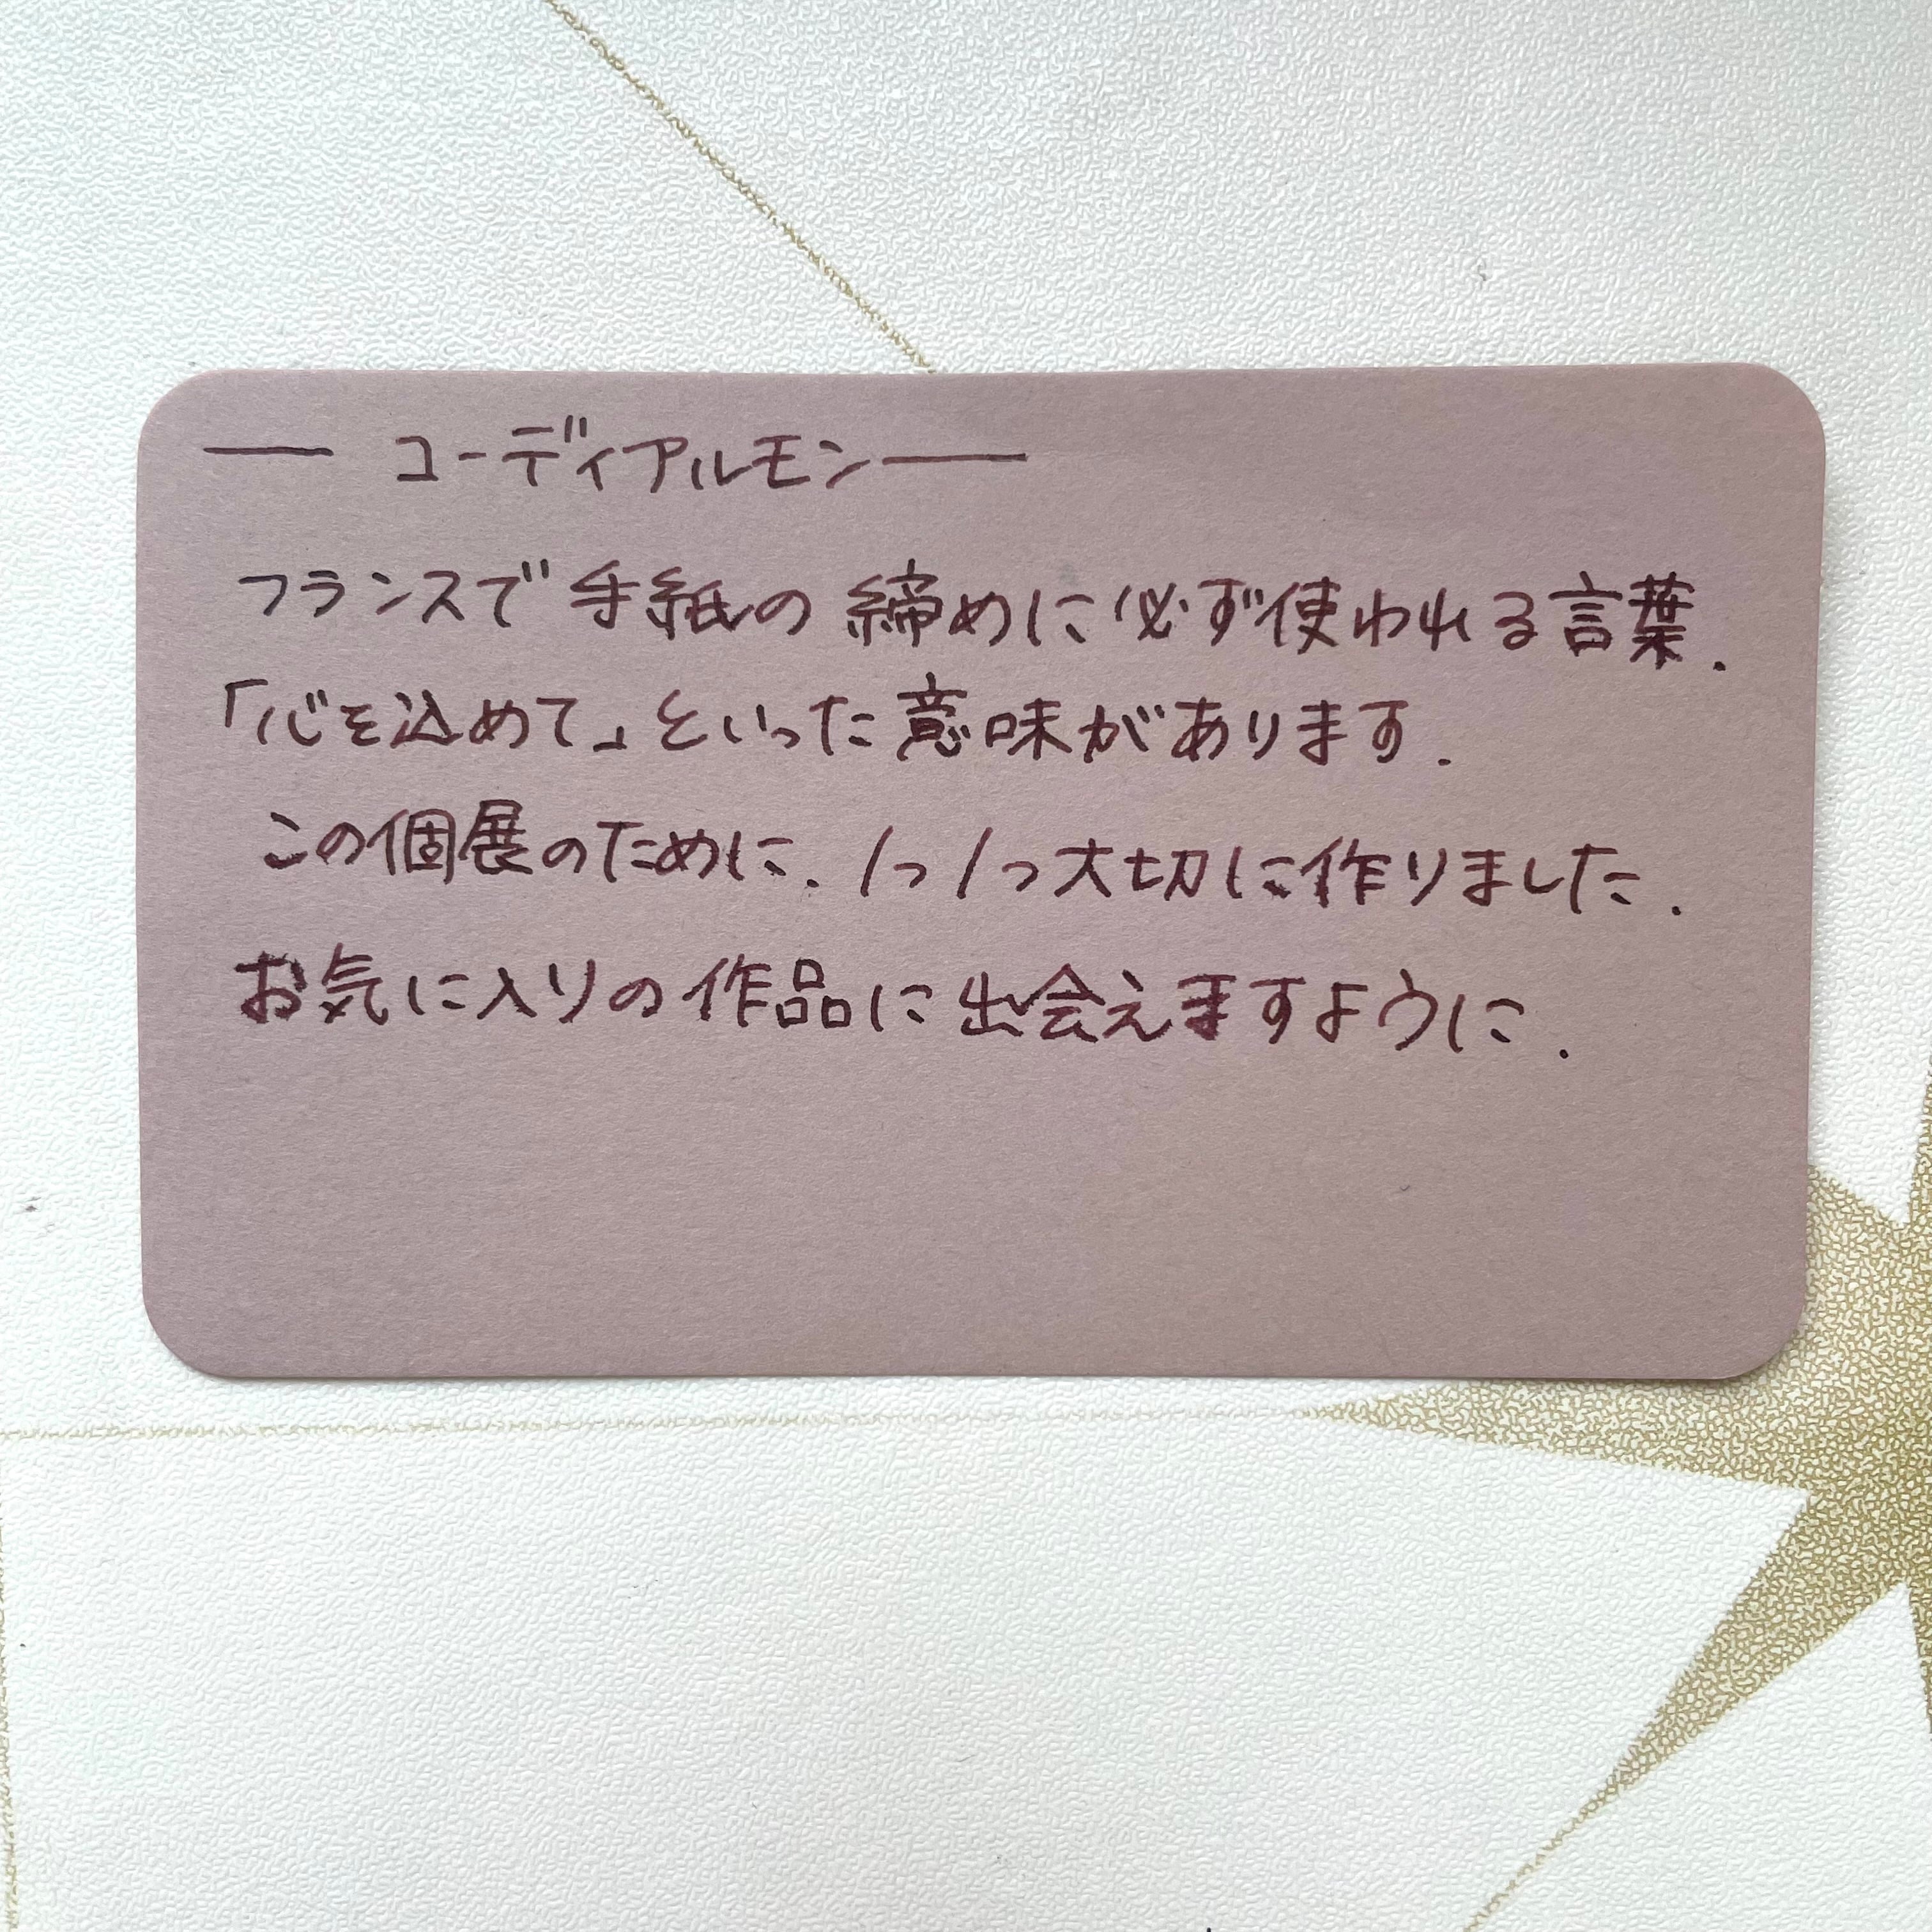 ── コーディアルモン ──
フランスで手紙の締めに必ず使われる言葉.
「心を込めて」といった意味があります.
この個展のために. 1つ1つ大切に作りました.
お気に入りの作品に出会えますように.